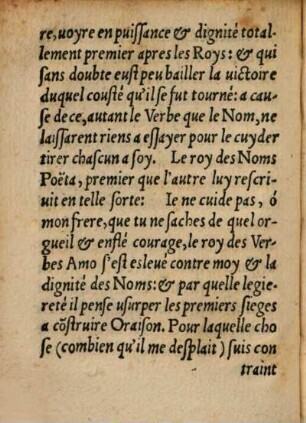 re, uoyre en puissance & dignité total-
lement premier apres les Roys: & qui
sans doubte eust peu bailler la uictoire
duquel cousté qu'il se fut tourné: a cau-
se de ce, autant le Verbe que le Nom, ne
laissarent riens a essayer pour le cuyder
tirer chascun a soy. Le roy des Noms
Poëta, premier que l'autre luy rescri-
uit en telle sorte: Ie ne cuide pas, ó
mon frere, que tu ne saches de quel or-
gueil & enflé courage, le roy des Ver-
bes Amo s'est esleué contre moy & la
dignité des Noms: & par quelle legie-
reté il pense usurper les premiers sieges
a cõstruire Oraison. Pour laquelle cho
se (combien qu'il me desplait) suis con
traint